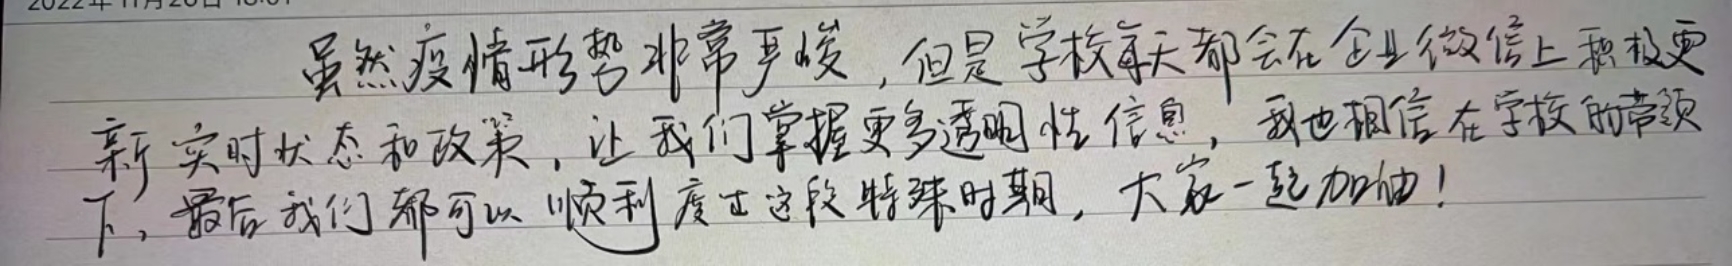 虽然疫情形势非常严峻，但是学校每天都会在企业微信上积极更
新实时状态和政策，让我们掌握更多透明性信息，我也相信在学校的带领
下，最后我们都可以顺利度过这段特殊时期，大家一起加油！